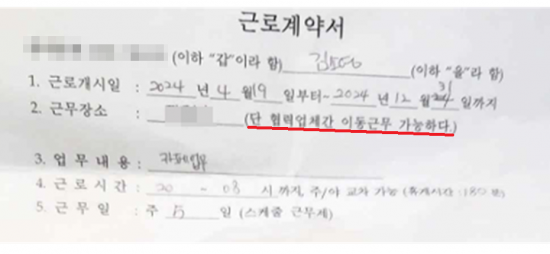 근로계약서
(이하 “갑”이라 함) (이하 “을”라 함)
1. 근로개시일 : 2024 년 4 월 19 일부터- 2024 년 12 월 31 일까지
2. 근무장소 : (단 협력업체간 이동근무 가능하다.)
3. 업 무 내 용 :
4. 근 로 시 간 : 20 - 08 시 까지, 주/야 교차 가능 (휴게시간 : 180 분)
5. 근 무 일 : 주 5 일 (스케쥴 근무제)